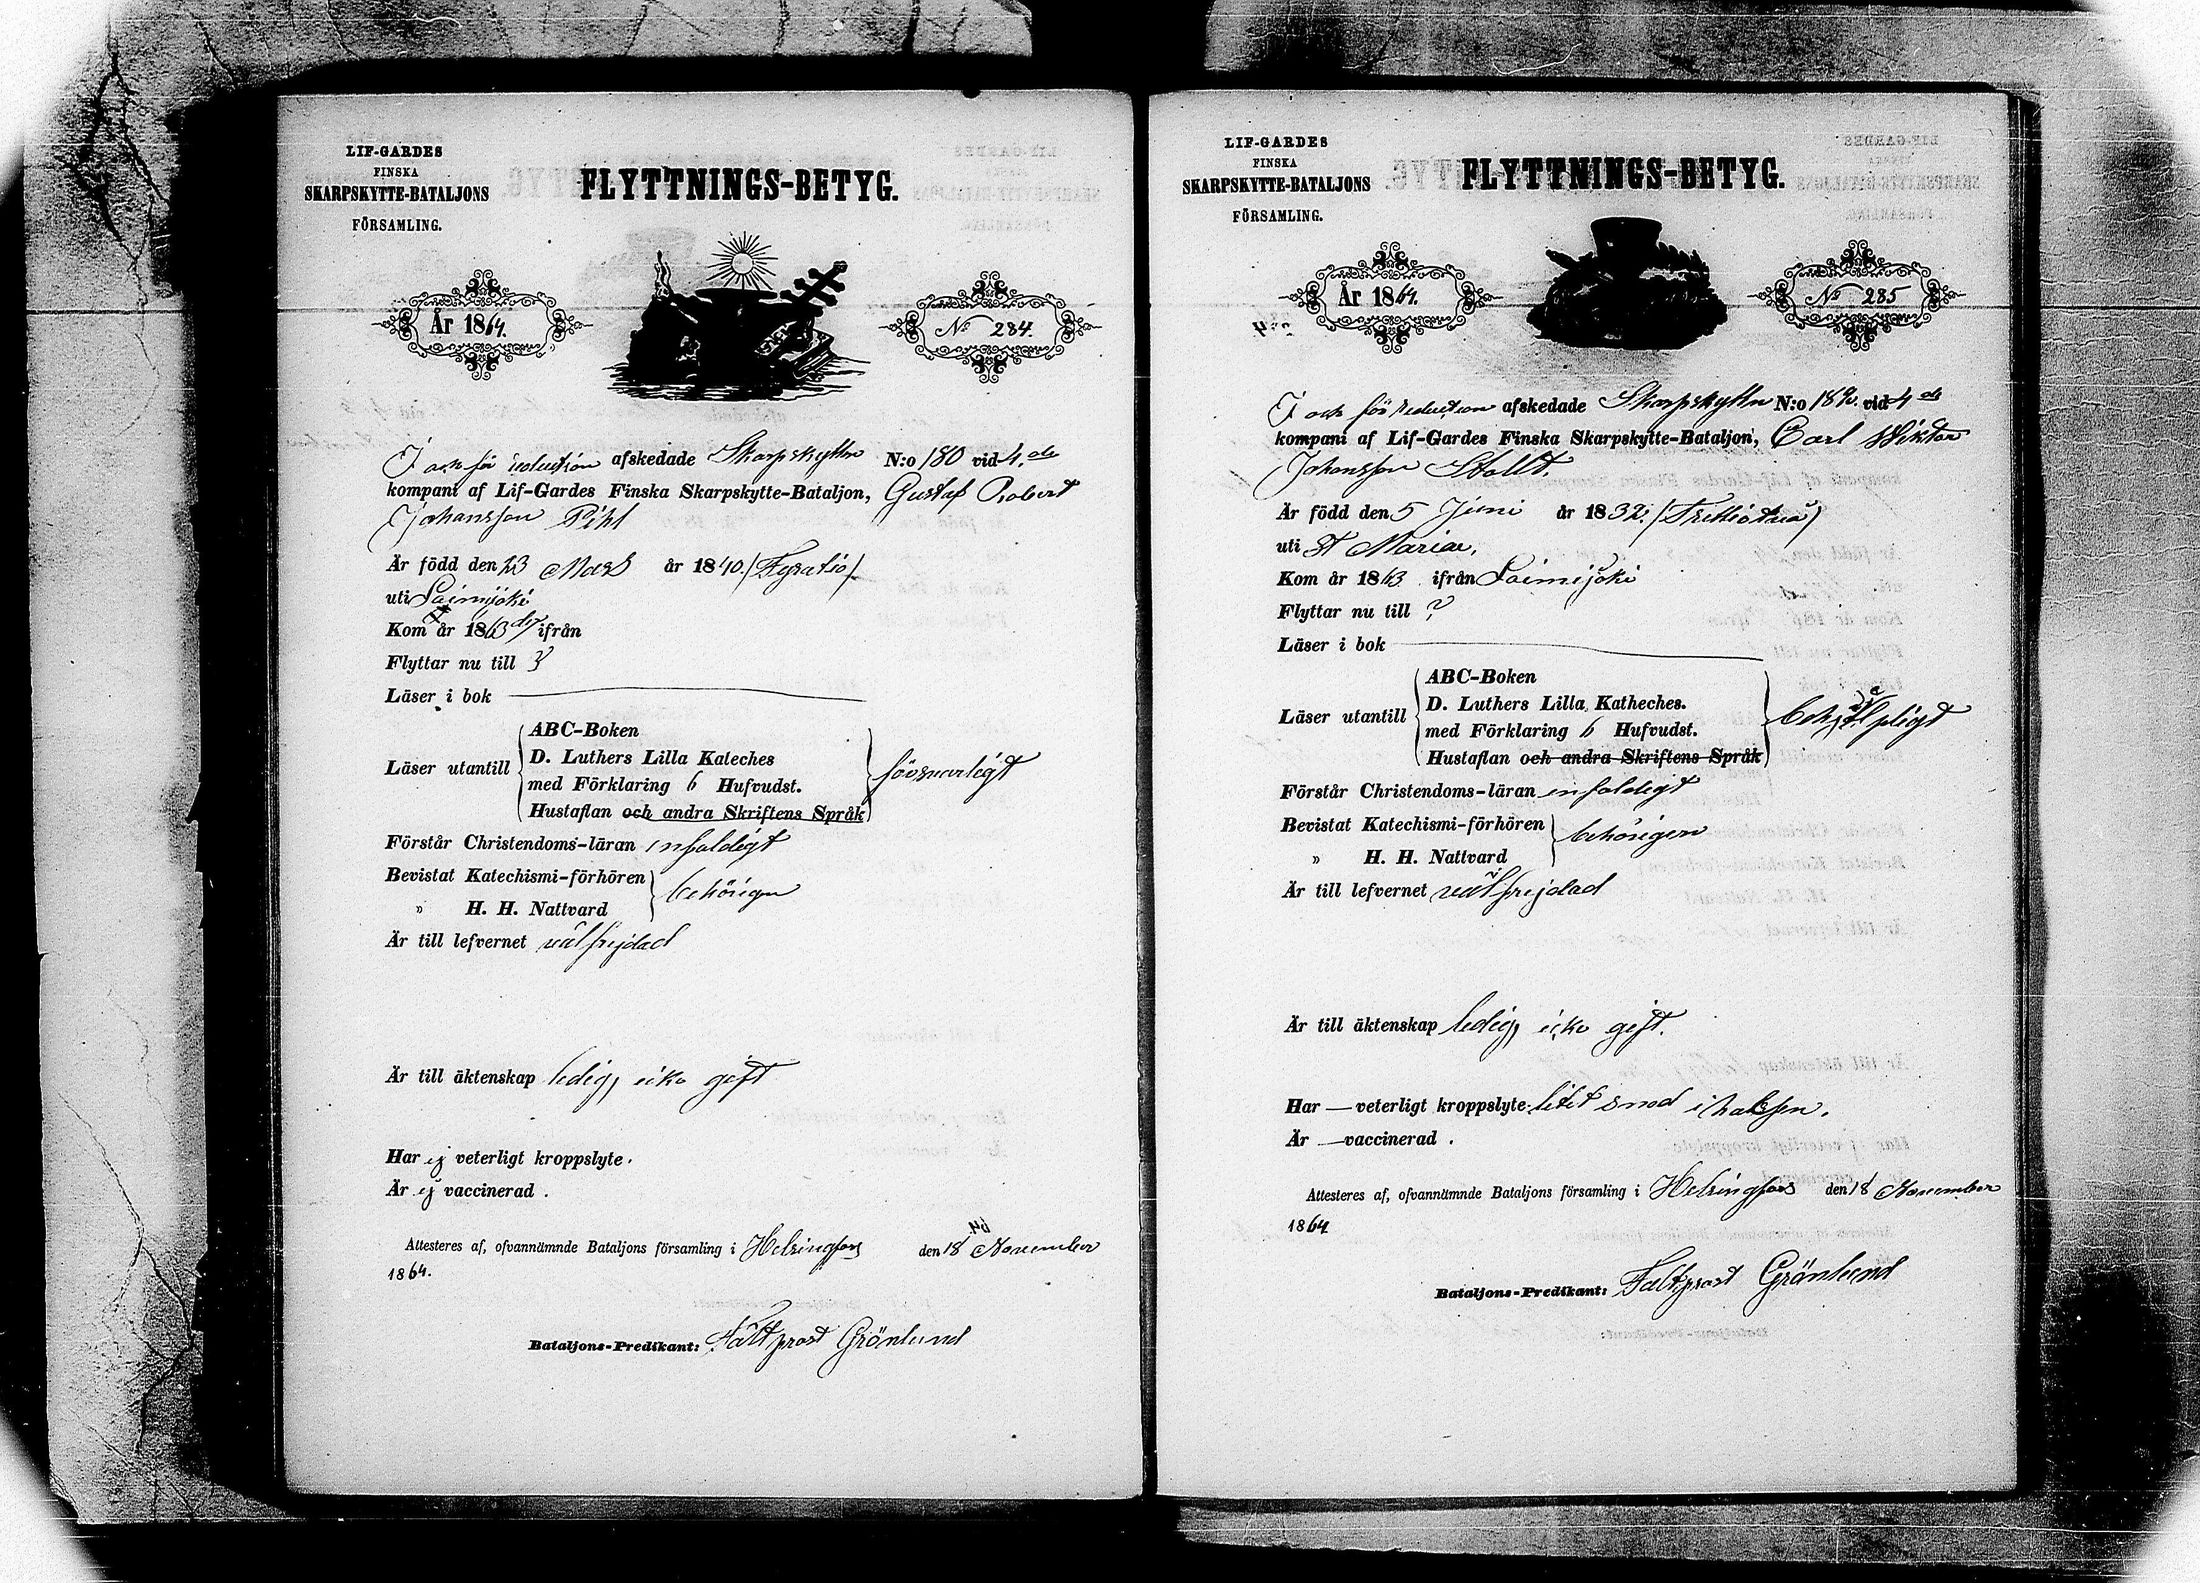 LIF-GARDES
FINSKA
SKARPSKYTTE-BATALJONS
FÖRSAMLING.
FLYTTNINGS-BETYG.
År 1864.
No 284.
I och för reduction afskedade Skarpskytten N:o 180 vid 4.de
kompani af Lif-Gardes Finska Skarpskytte-Bataljon, Gustaf Robert
Johansson Pihl
Är född den 23 Mars år 1840. (Fyratio)
uti Loimijoki
Kom år 1863 ifrån
Flyttar nu till ?
Läser i bok
Läser utantill
ABC-Boken
D. Luthers Lilla Kateches
med Förklaring 6 Hufvudst.
Hustaflan och andra Skriftens Språk
försvarligt
Förstår Christendoms-läran enfaldigt
Bevistat Katechismi-förhören
» H. H. Nattvard
behörigen
Är till lefvernet välfrejdad
Är till äktenskap ledig, icke gift
Har ej veterligt kroppslyte.
Är ej vaccinerad.
Attesteras af, ofvannämnde Bataljons församling i Helsingfors den 18 November
1864.
Bataljons-Predikant: Fältprost Grönlund
LIF-GARDES
FINSKA
SKARPSKYTTE-BATALJONS
FÖRSAMLING.
FLYTTNINGS-BETYG.
År 1864.
No 285
I och för reduction afskedade Skarpskytten N:o 182. vid 4 de
kompani af Lif-Gardes Finska Skarpskytte-Bataljon, Carl Wiktor
Johansson Stollt.
Är född den 5 Juni år 1832. (Trettiotvå)
uti St Mariae,
Kom år 1863 ifrån Loimijoki
Flyttar nu till ?
Läser i bok
Läser utantill
ABC-Boken
D. Luthers Lilla Katheches.
med Förklaring 6 Hufvudst.
Hustaflan och andra Skriftens Språk
Förstår Christendoms-läran enfaldigt
Bevistat Katechismi-förhören
» H. H. Nattvard
behörigen
Är till lefvernet välfrejdad
Är till äktenskap ledig, icke gift.
Har — veterligt kroppslyte litet i halsen.
Är — vaccinerad.
Attesteres af, ofvannämnde Bataljons församling i Helsingfors den 18 November
1864
Bataljons-Predikant: Fältprost Grönlund